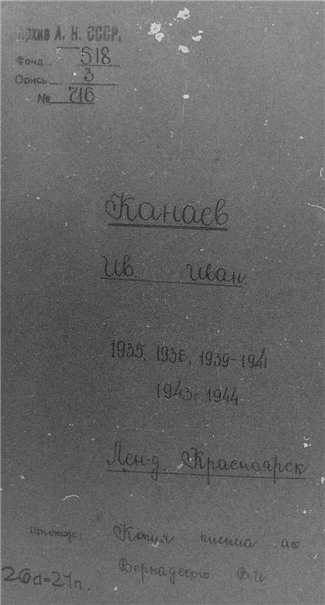 Архив А. Н. СССР.
Фонд 518
Опись 3
№ 716
Канаев
Ив Иван
1935, 1936, 1939-1941
1943, 1944
Лен-д, Красноярск
Копия письма
Вернадского В.И.